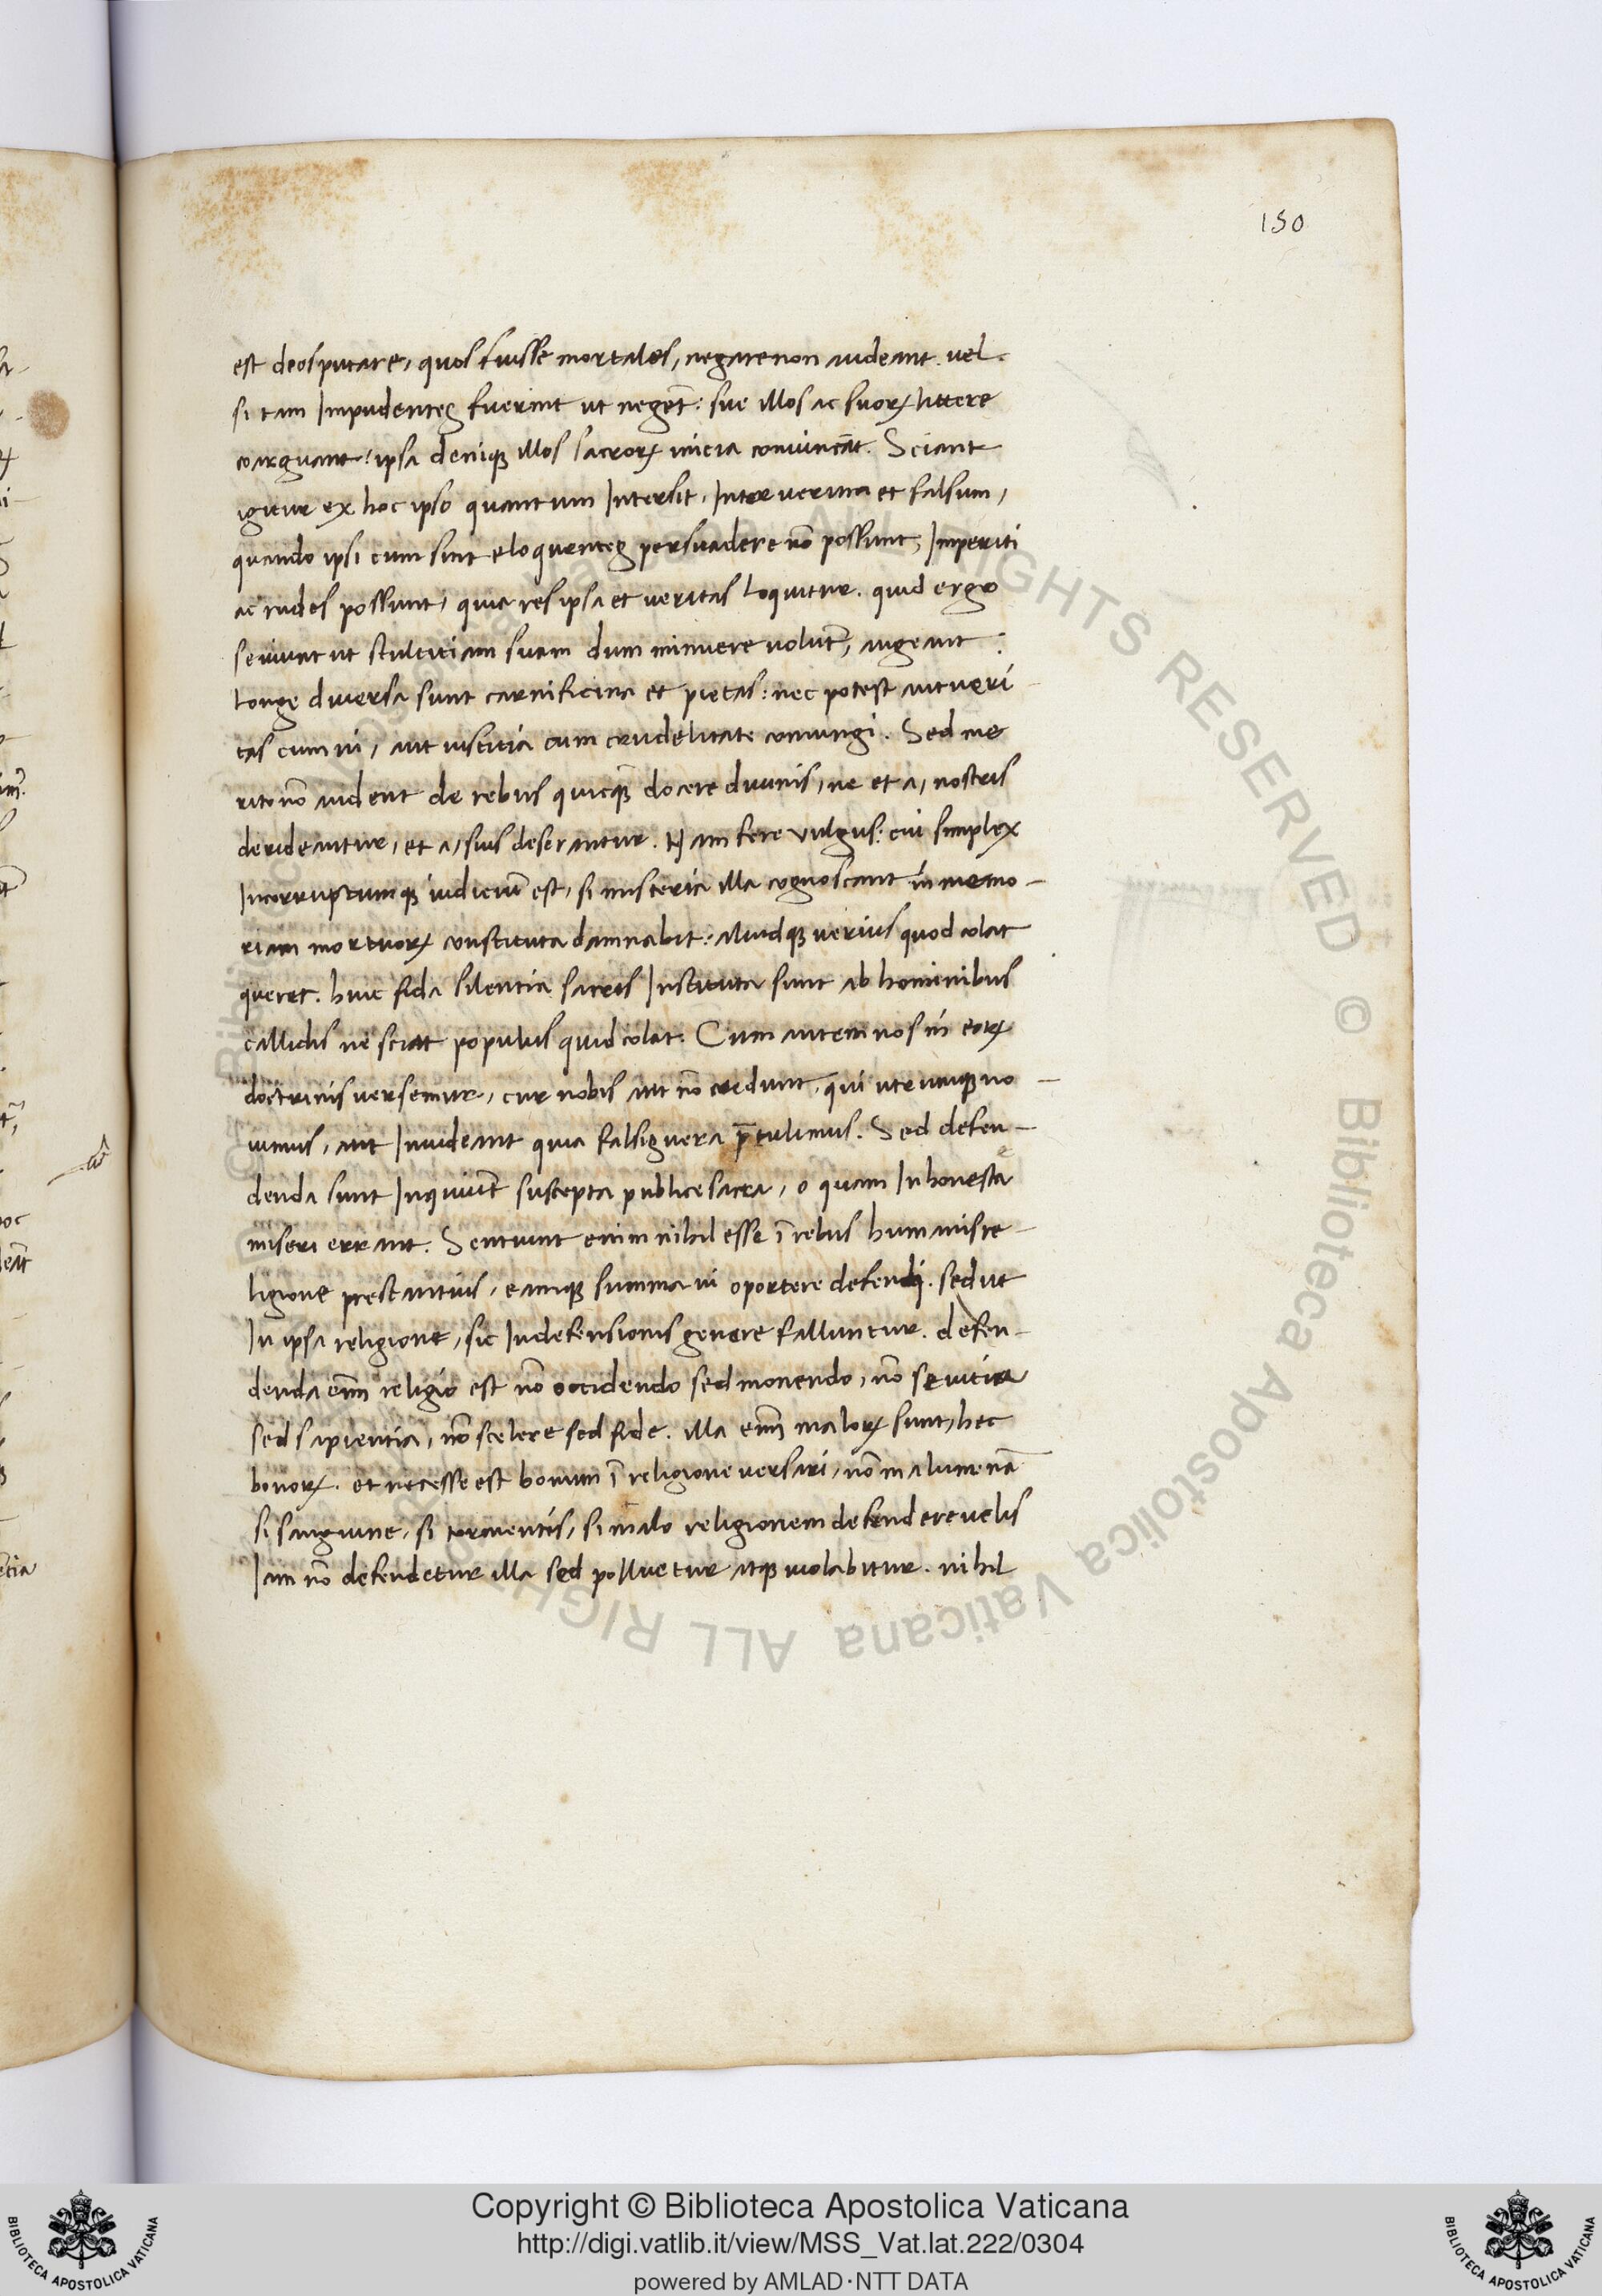 150
est deos putare, quos fuisse mortales, negare non audeant. uel
si tam Impudentes fuerint ut negēt: sue illos ac suoꝝ littere
coarguant: ipsa deniqꝫ illos sacroꝝ inicia conuincāt. Sciant
igitur ex hoc ipso quantum Intersit, Inter uerum et falsum,
quando ipsi cum sint eloquentes persuadere nō possunt, Imperiti
ac rudes possunt, quia res ipsa et ueritas loquitur. quid ergo
seuiunt ut stulticiam suam dum minuere uolūt, augeant:
longe diuersa sunt carnificina et pietas: nec potest aut ueri-
tas cum ui, aut iusticia cum crudelitate coniungi. Sed me
rito nō audent de rebus quicqꝫ docere diuinis, ne et a, nostris
derideantur, et a, suis deserantur. Nam fere uulgus: cui simplex
Incorruptumqꝫ iudiciū est, si misteria illa cognoscant in memo-
riam mortuoꝝ constituta damnabit: aliudqꝫ uerius quod colat
queret. huic fida silentia sacris Instituta sunt ab hominibus
callidis ne sciat populus quid colat: Cum autem nos in eoꝝ
doctrinis uersemur, cur nobis aut nō credunt, qui utrunqꝫ no-
uimus, aut Inuideant quia falsis uera p̄tulimus. Sed defen-
denda sunt Inquiūt suscepta publice sacra, o quam Inhonesta
miseri errant. Sentiunt enim nihil esse ī rebus humanis re-
ligione prestantius, eamqꝫ summa ui oportere defendi. sed ut
In ipsa religione, sic In defensionis genere falluntur. defen-
denda enī religio est nō occidendo sed monendo, nō seuicia
sed sapientia, nō scelere sed fide. illa enī maloꝝ sunt, hec
bonoꝝ. et necesse est bonum ī religione uersari, nō malum. nā
si sanguine, si tormentis, si malo religionem defendere uelis
Iam nō defendetur illa sed polluetur atqꝫ uiolabitur. nihil
Copyright © Biblioteca Apostolica Vaticana
http://digi.vatlib.it/view/MSS_Vat.lat.222/0304
powered by AMLAD·NTT DATA
BIBLIOTECA APOSTOLICA VATICANA
BIBLIOTECA APOSTOLICA VATICANA